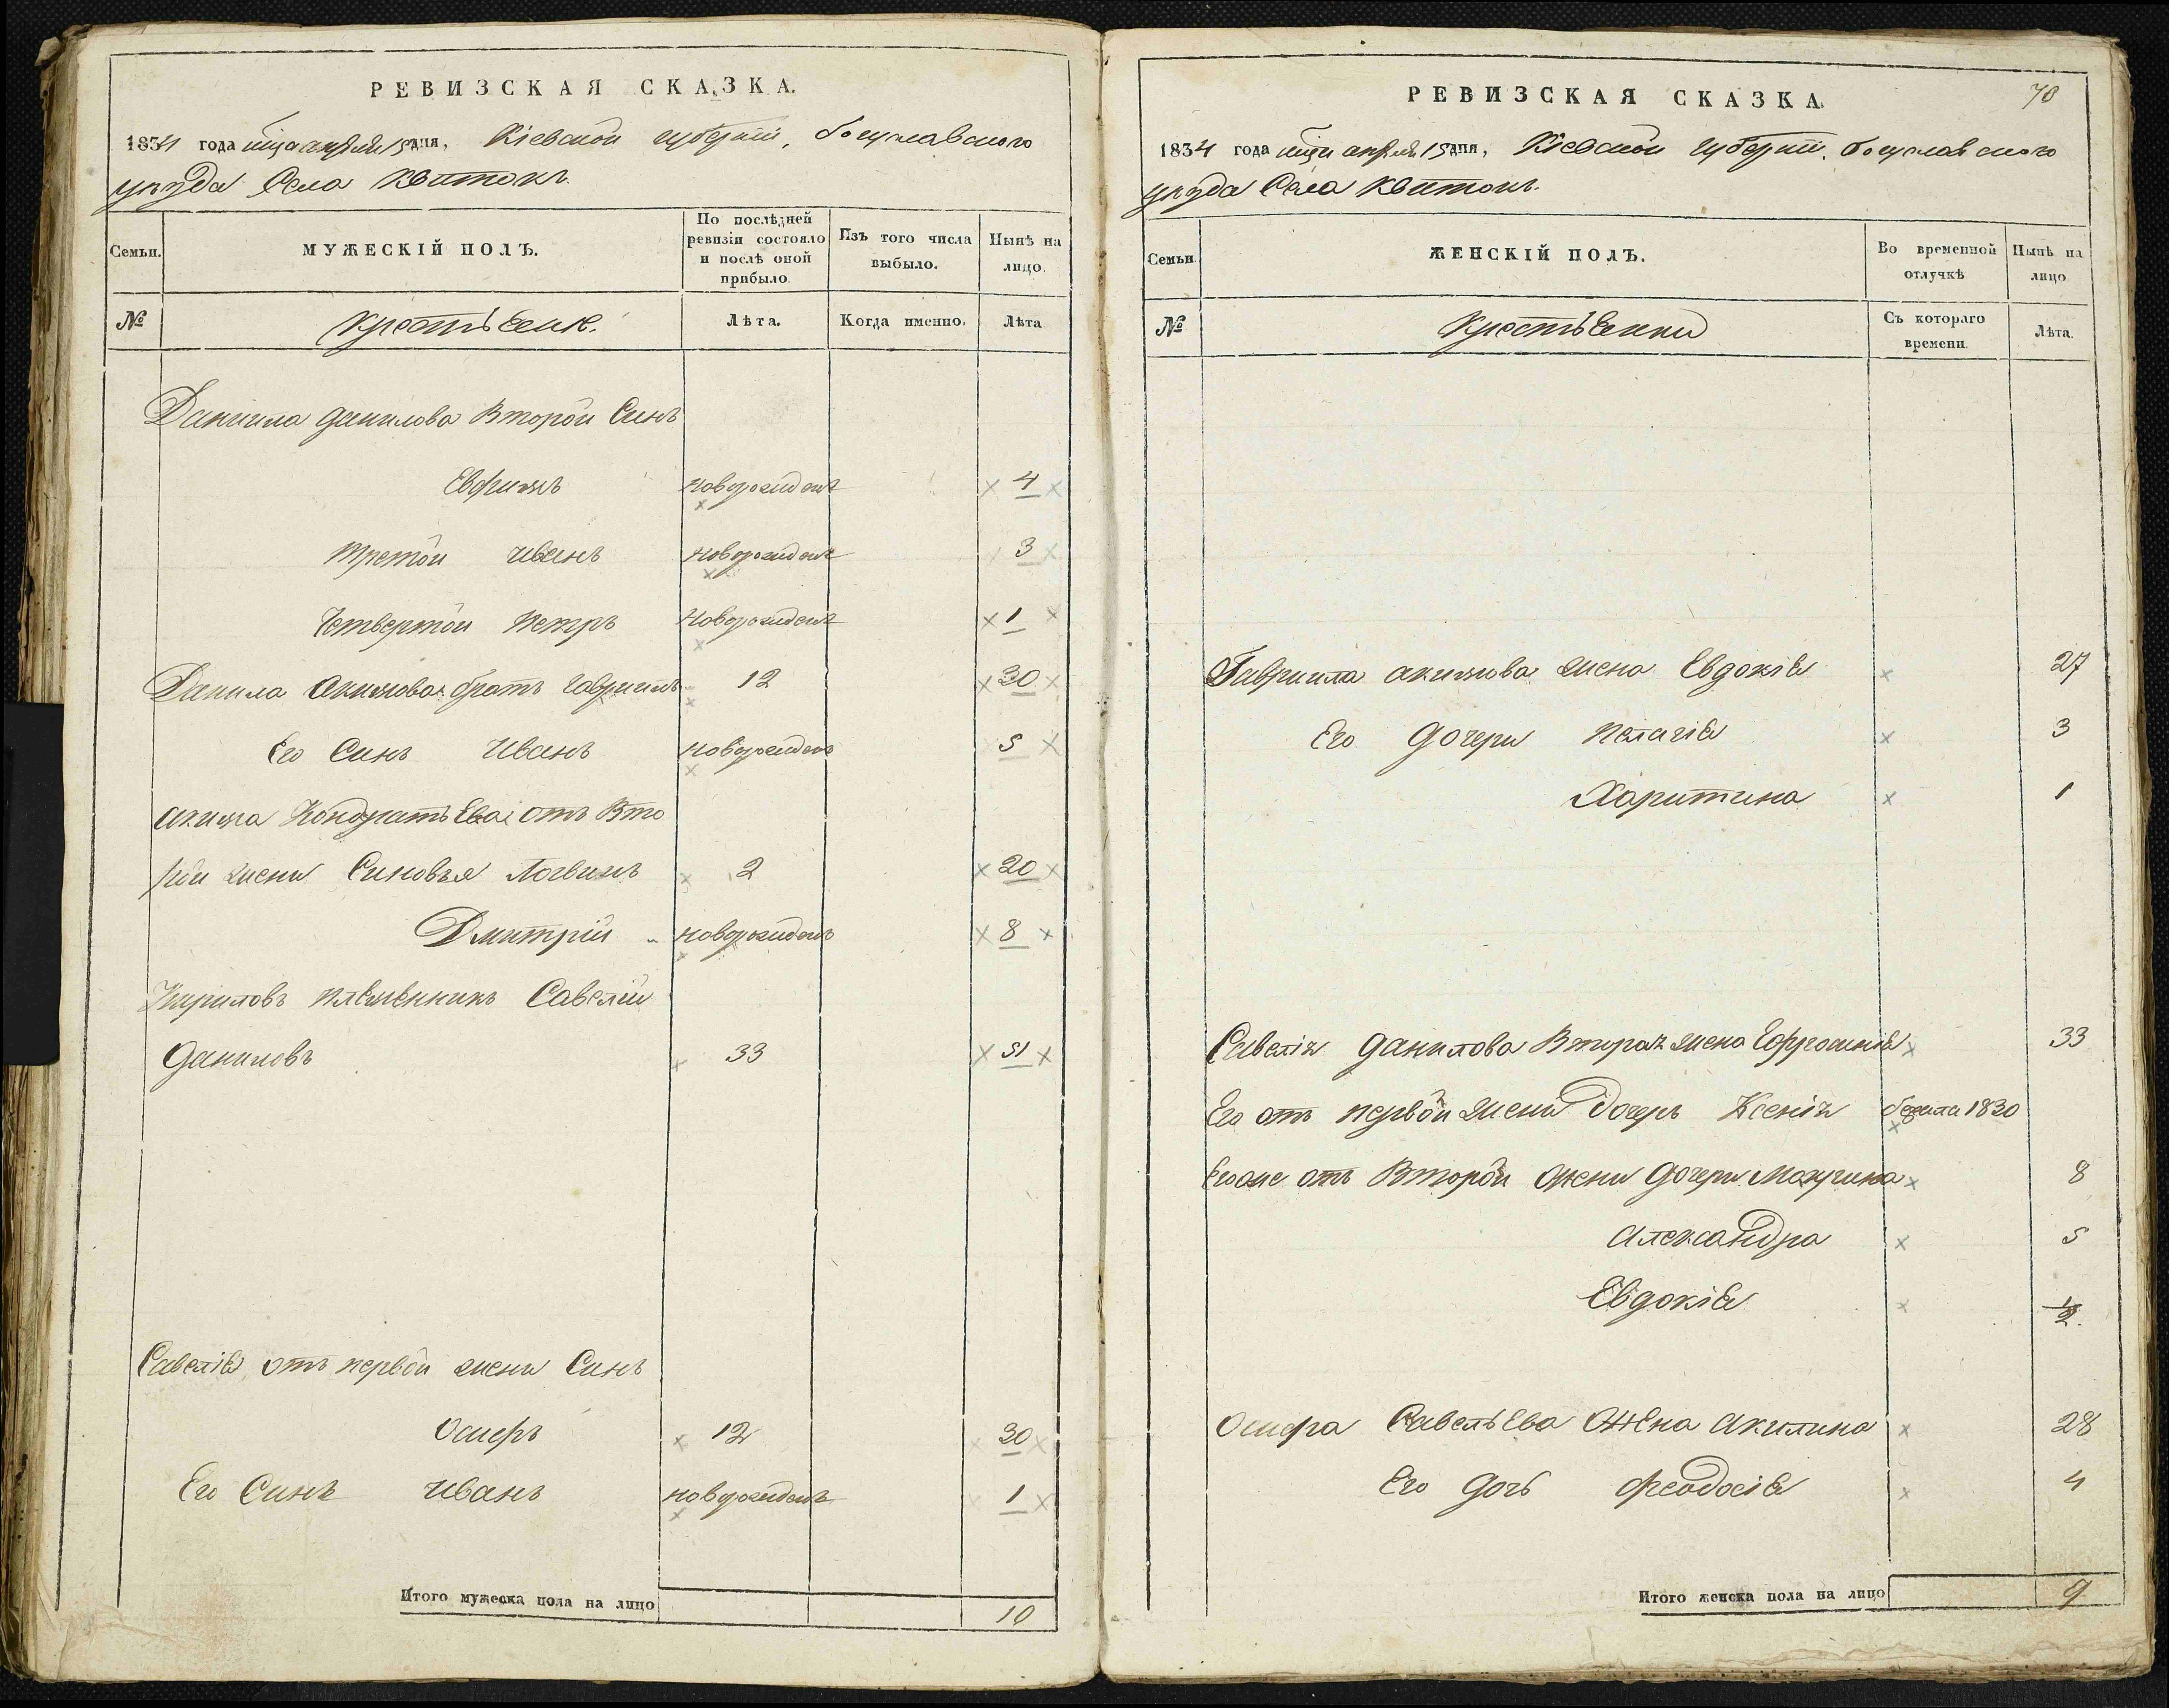 РЕВИЗСКАЯ СКАЗКА.
1834 года мца апреля 15 дня, Кіевской губерніи, богуславского
уезда Села Квитокъ.
Семьи.
МУЖЕСКІЙ ПОЛЪ.
По послѣдней
ревизіи состояло
и послѣ оной
прибыло.
Изъ того числа
выбыло.
Нынѣ на
лицо.
№
крестьене.
Лѣта.
Когда именно.
Лѣта
Даниила данилова Второй Синъ
Евфимъ новорожденъ 4
третой иванъ новорожденъ 3
Четвертой петръ новорожденъ 1
Данила Акимова братъ гавриилъ 12 30
Его Синъ Иванъ новорожденъ 5
акима Кондратьева отъ Вто
рой жени Синовья Логвинъ 2 20
Дмитрій новорожденъ 8
Кириловъ племенникъ Савелій
даниловъ 33 51
Савелія отъ первой жени Синъ
Осифъ 12 30
Его Синъ иванъ новорожденъ 1
Итого мужеска пола на лицо 10
70
РЕВИЗСКАЯ СКАЗКА.
1834 года мца апреля 15 дня, Кіевской губерніи, богуславского
уезда Села Квитокъ.
Семьи.
ЖЕНСКІЙ ПОЛЪ.
Во временной
отлучкѣ
Нынѣ на
лицо
№
Крестьенки
Съ котораго
времени.
Лѣта.
Гавриила акимова жена Евдокія 27
Его дочери пелагія 3
Харитина 1
Савелія данилова Вторая жена Ефросинія 33
Его отъ первой жени дочерь Ксенія бежала 1830
Егоже отъ Второй жени дочери Мокрина 8
александра 5
Евдокія 1/2.
Осифа Савельева жена акилина 28
Его дочь феодосія 4
Итого женска пола на лицо 9